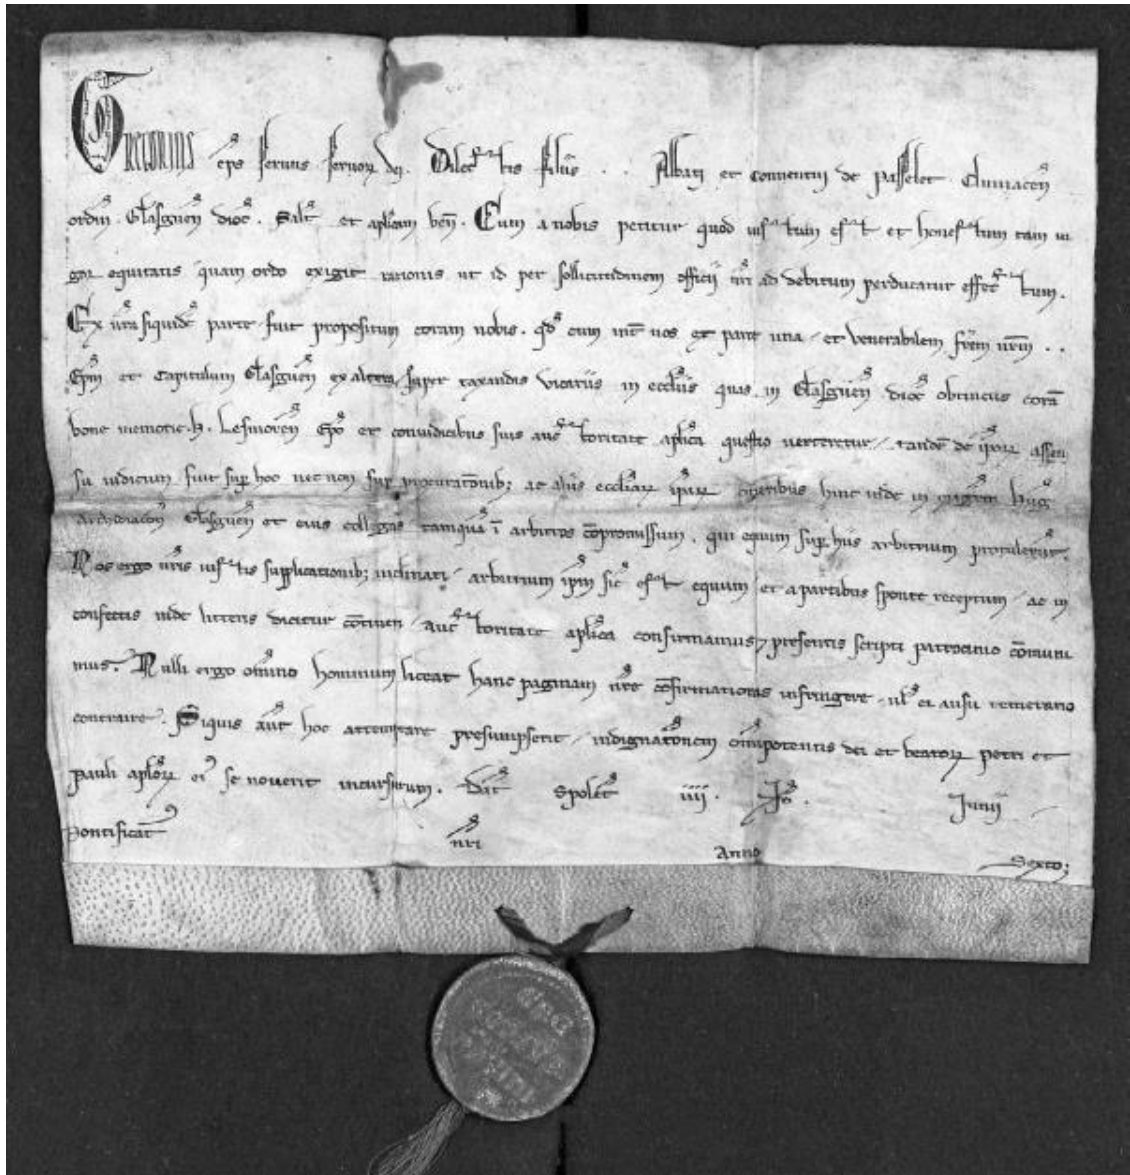 Gregorius eps seruus seruor dei. Dilectis filiis . . Abbati et conuentui de Passelet Cluniaceñ
ordiñ Glasgueñ dioc̃. Salt̃ et aplicam beñ. Cum a nobis petitur quod iustum est et honestum tam ui
gor equitatis quam ordo exigit rationis ut id per sollicitudinem officii nr̃i ad debitum perducatur effectum.
Ex ur̃a siquid̃ parte fuit propositum coram nobis. qd̃ cum int̃ uos ex parte una et uenerabilem frẽm nr̃m . .
Ep̃m et Capitulum Glasgueñ ex altera super taxandis vicariis in eccliis quas in Glasgueñ dioc̃ obtinetis corã
bone memorie .h. Lesmoreñ Ep̃o et coniudicibus suis auctoritate aplica questio uerteretur tandẽ de ip̃or assen
su iudicum fuit sup hoc necnon sup procuratõnib; ac aliis eccliar ip̃ar oneribus hinc inde in mag̃rm Hug̃
archidiacoñ Glasgueñ et eius collegas tamquã ĩ arbitros cõpromissum. qui equum sup hiis arbitrium protulerũt.
Nos ergo ur̃is iustis supplicationib; inclinati arbitrium ip̃m sic̃ est equum et a partibus sponte receptum ac in
confectis inde litteris dicitur cõtineri auctoritate aplica confirmamus, presentis scripti patrocinio cõmuni
mus. Nulli ergo om̃ino hominum liceat hanc paginam nr̃e cõfirmationis infringere ul̃ ei ausu temerario
contraire. Siquis aut̃ hoc attemptare presumpserit indignatõnem om̃ipotentis dei et beator petri et
pauli aplor ei' se nouerit incursurum. Dat̃ Spolet̃ iiij. Id̃. Junii
Pontificat̃ nr̃i Anno Sexto;